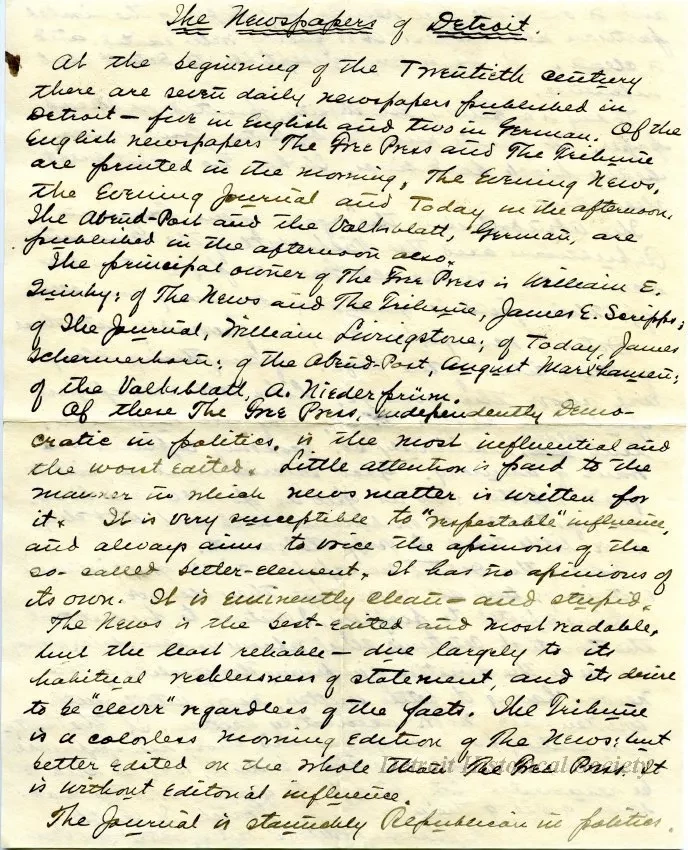 The Newspapers of Detroit.
At the beginning of the Twentieth century
there are seven daily newspapers published in
Detroit — five in English and two in German. Of the
English newspapers The Free Press and The Tribune
are printed in the morning, The Evening News,
the Evening Journal and Today in the afternoon.
The Abend-Post and the Volksblatt, German, are
published in the afternoon also.
The principal owner of The Free Press is William E.
Quinby; of The News and The Tribune, James E. Scripps;
of The Journal, William Livingstone; of Today, James
Schermerhorn; of the Abend-Post, August Marxhausen;
of the Volksblatt, A. Niederprüm.
Of these The Free Press, independently Demo-
cratic in politics, is the most influential and
the worst edited. Little attention is paid to the
manner in which news matter is written for
it. It is very susceptible to "respectable" influence,
and always aims to voice the opinions of the
so-called better-element. It has no opinions of
its own. It is eminently clean — and stupid.
The News is the best-edited and most readable,
but the least reliable — due largely to its
habitual recklessness of statement, and its desire
to be "clever" regardless of the facts. The Tribune
is a colorless morning edition of The News; but
better edited on the whole than The Free Press. It
is without editorial influence.
Detroit Historical Society
The Journal is staunchly Republican in politics.